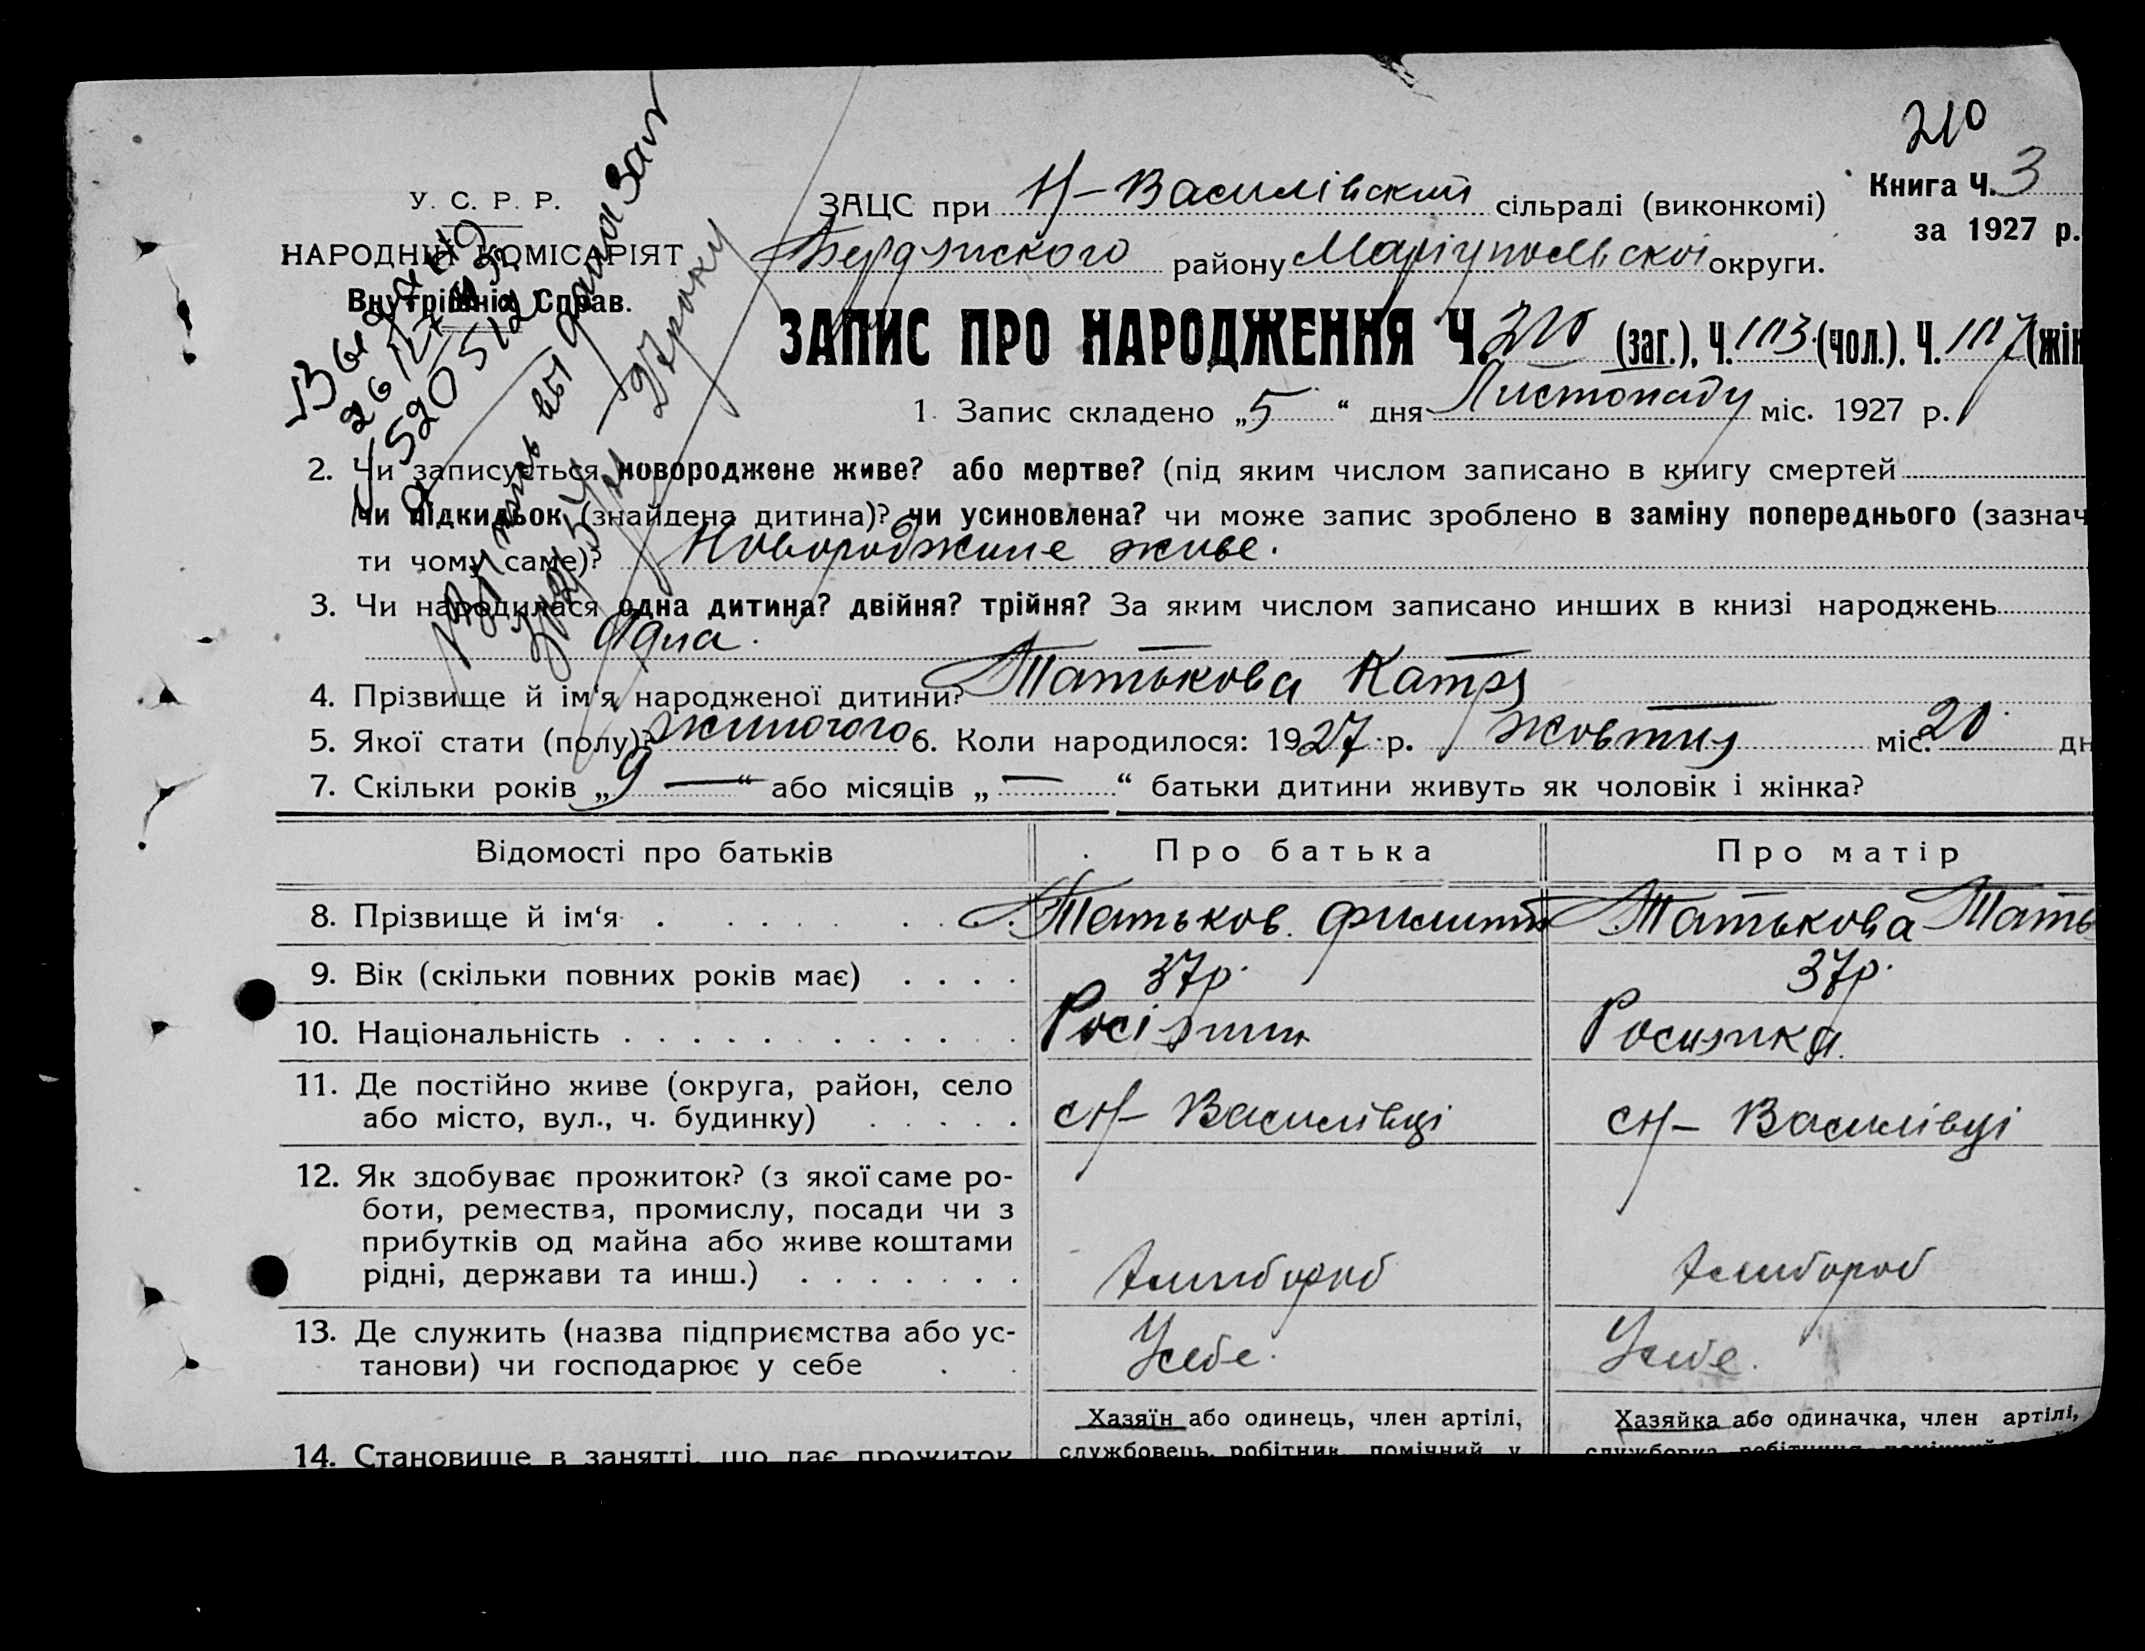 210
Книга Ч. 3
за 1927 р.
У. С. Р. Р.
НАРОДНИЙ КОМІСАРІЯТ
Внутрішніх Справ.
ЗАЦС при Н-Василівский сільраді (виконкомі)
Бердянского району Маріупольскої округи.
ЗАПИС ПРО НАРОДЖЕННЯ Ч. 210 (заг.), Ч. 103 (чол.). Ч. 107 (жін
1. Запис складено „5“ дня Листопаду міс. 1927 р.
2. Чи записується новороджене живе? або мертве? (під яким числом записано в книгу смертей
чи підкидьок (знайдена дитина)? чи усиновлена? чи може запис зроблено в заміну попереднього (зазнач
ти чому саме)? Новороджене живе.
3. Чи народилася одна дитина? двійня? трійня? За яким числом записано инших в книзі народжень
Одна.
4. Прізвище й ім‘я народженої дитини? Татькова Катря
5. Якої стати (полу)? жиночого 6. Коли народилося: 1927 р. жовтня міс. 20 дн
7. Скільки років „9 —“ або місяців „—“ батьки дитини живуть як чоловік і жінка?
Відомості про батьків Про батька Про матір
8. Прізвище й ім‘я Татьков Филипп Татькова Тать
9. Вік (скільки повних років має) 37р. 37р.
10. Національність Росіянин Росиянка
11. Де постійно живе (округа, район, село
або місто, вул., ч. будинку) с Н- Василівці с Н- Василівці
12. Як здобуває прожиток? (з якої саме ро-
боти, ремества, промислу, посади чи з
прибутків од майна або живе коштами
рідні, держави та инш.) Хлибороб Хлибороб
13. Де служить (назва підприємства або ус-
танови) чи господарює у себе Усебе. Усебе.
Хазяїн або одинець, член артілі, Хазяйка або одиначка, член артілі,
14. Становище в занятті, що дає прожиток службовець, робітник, помічний у